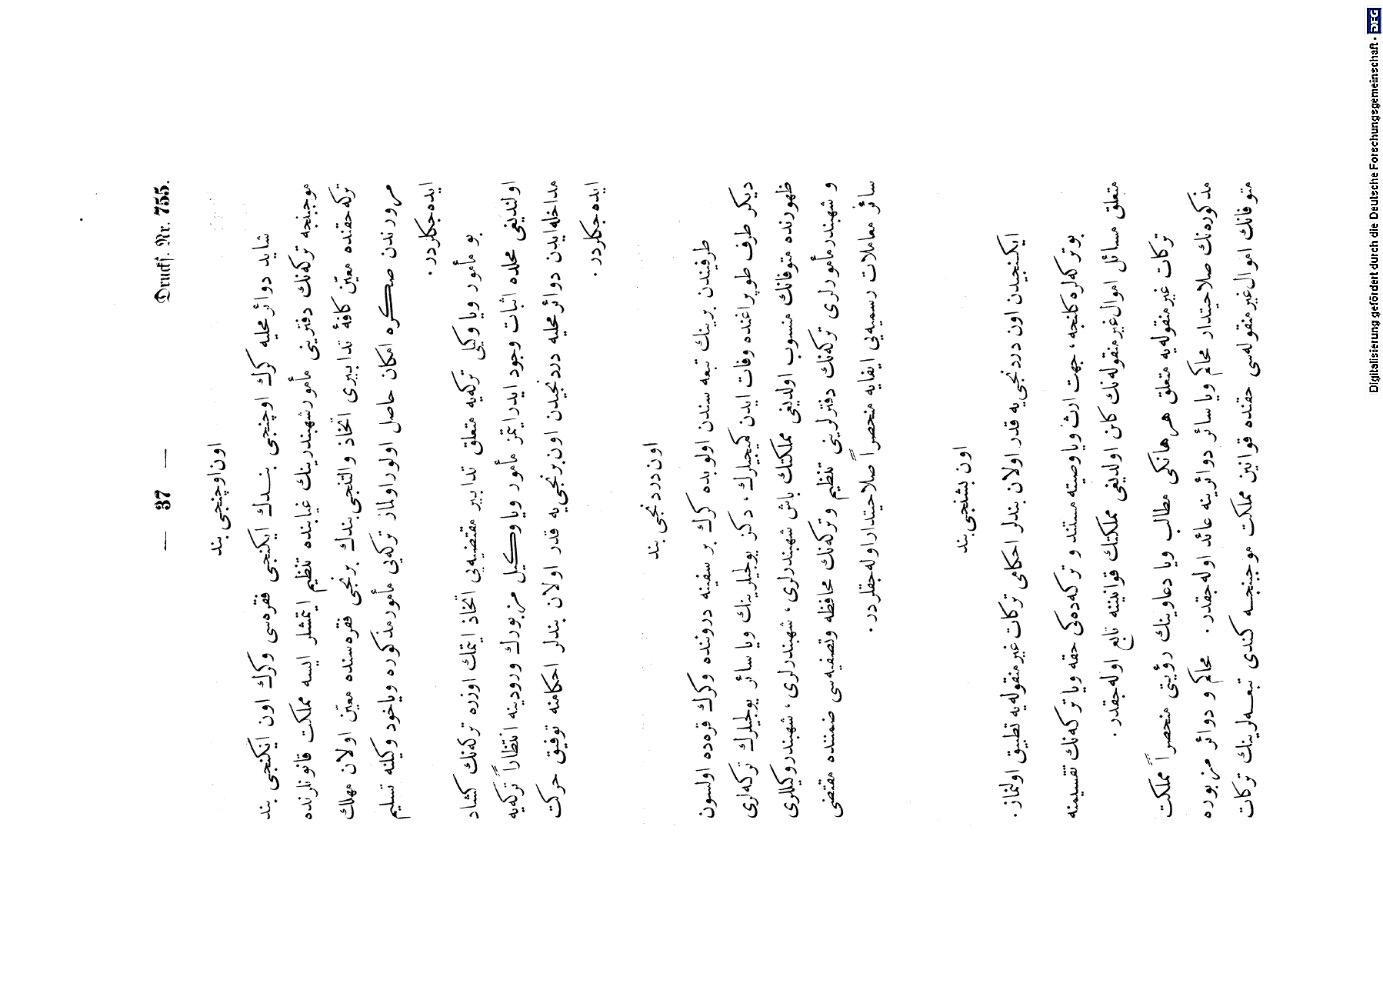 — 37 —
Drucks. Nr. 755.
اون اوچنجی بند
شاید دوائر محلیه كرك اوچنجی بندك ایكنجی فقره‌سی وكرك اون ایكنجی بند
موجبنجه تركه‌نك دفترینی مأمور شهبندرینك غیابنده تنظیم ایتمشلر ایسه مملكت قانونلرنده
تركه حقنده معین كافهٔ تدابیری اتخاذ والتنجی بندك برنجی فقره‌سنده معین اولان مهلك
مرورندن صكره امكان حاصل اولور اولماز تركه‌یی مأمور مذكوره ویاخود وكیلنه تسلیم
ایده‌جكلردر .
بو مأمور ویا وكیلی تركه‌یه متعلق تدابیر مقتضیه‌یی اتخاذ ایتمك اوزره تركه‌نك كشاد
اولندیغی محلده اثبات وجود ایدر ایتمز مأمور ویا وكیل مزبورك ورودینه انتظاراً تركه‌یه
مداخله ایدن دوائر محلیه دردنجیدن اون برنجی‌یه قدر اولان بندلر احكامنه توفیق حركت
ایده‌جكلردر .
اون دردنجی بند
طرفیندن برینك تبعه‌سندن اولوبده كرك بر سفینه دروننده وكرك قره‌ده اولسون
دیكر طرف طوپراغنده وفات ایدن كمیجیلرك ، دكز یولجیلرینك ویا سائر یولجیلرك تركه‌لری
ظهورنده متوفانك منسوب اولدیغی مملكتك باش شهبندرلری ، شهبندرلری ، شهبندر وكیللری
و شهبندر مأمورلری تركه‌نك دفترلرینی تنظیم وتركه‌نك محافظه وتصفیه‌سی ضمننده مقتضی
سائر معاملات رسمیه‌یی ایفایه منحصراً صلاحیتدار اوله‌جقلردر .
اون بشنجی بند
ایكنجیدن اون دردنجی‌یه قدر اولان بندلر احكامی تركات غیر منقوله‌یه تطبیق اولنماز .
بو تركه‌لره كلنجه ، جهت ارث ویا وصیته مستند و تركه‌ده‌كی حقه ویا تركه‌نك تقسیمنه
متعلق مسائل اموال غیر منقوله‌نك كائن اولدیغی مملكتك قوانیننه تابع اوله‌جقدر .
تركات غیر منقوله‌یه متعلق هر هانكی مطالب ویا دعاوینك رؤیتی منحصراً مملكت
مذكوره‌نك صلاحیتدار محاكم ویا سائر دوائرینه عائد اوله‌جقدر . محاكم و دوائر مزبوره
متوفانك اموال غیر منقوله‌سی حقنده قوانین مملكت موجبنجه كندی تبعه‌لرینك تركات
Digitalisierung gefördert durch die Deutsche Forschungsgemeinschaft - DFG